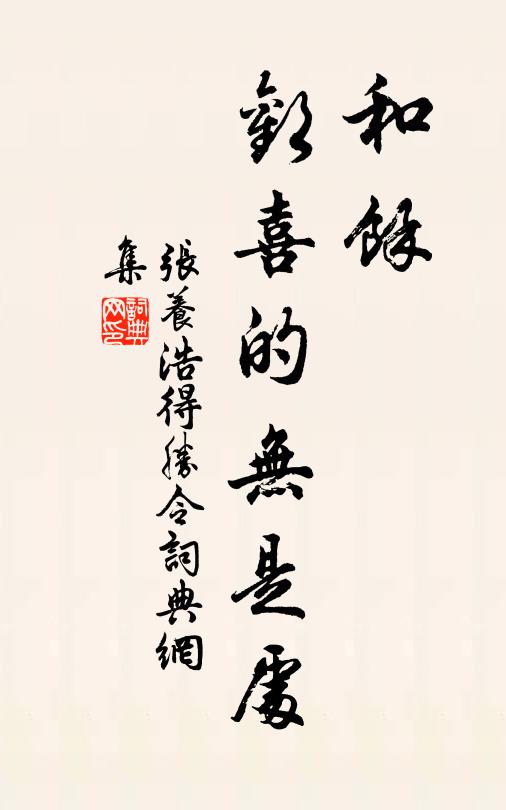 和餘
歡喜的無是處
張養浩得勝令詞典網
集
詞典
网印